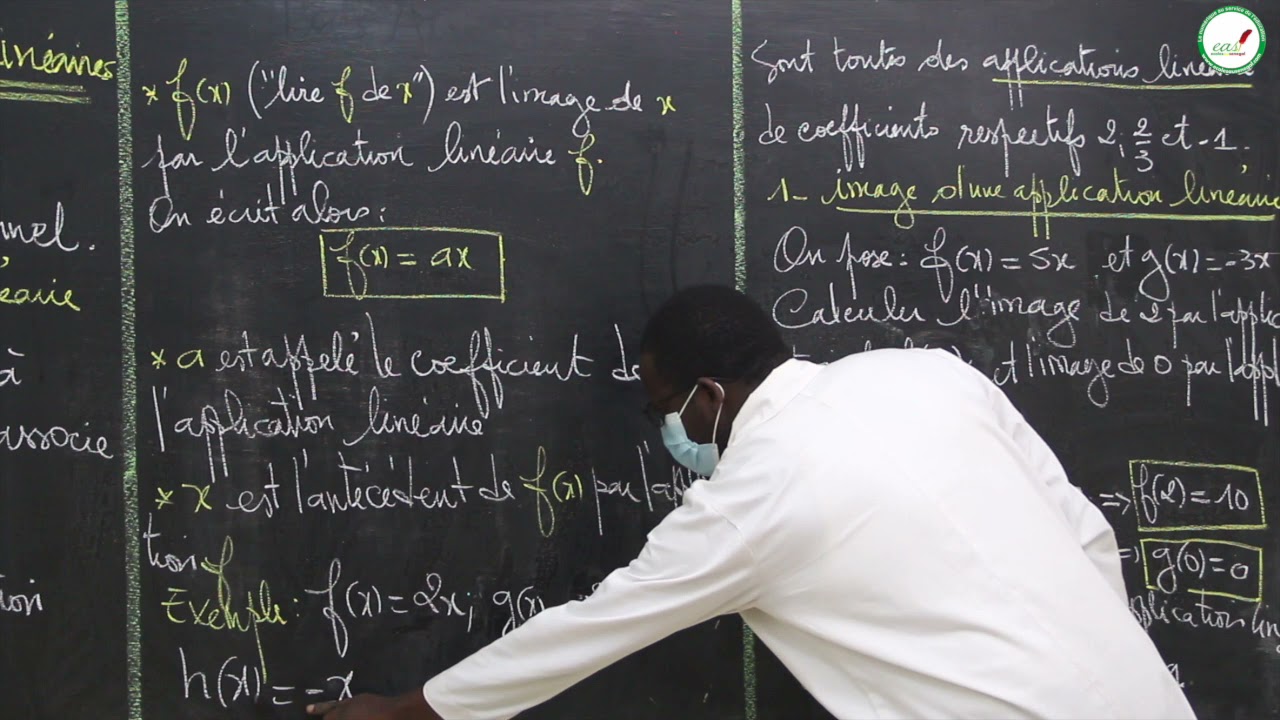 linéaires
nnel.
éaire
à
associe
tion
* f(x) ("lire f de x") est l'image de x
par l'application linéaire f.
On écrit alors :
f(x) = ax
* a est appelé le coefficient de
l'application linéaire
* x est l'antécédent de f(x) par l'app
tion f
Exemple : f(x) = 2x ; g(x)
h(x) = -x
Sont toutes des applications linéaire
de coefficients respectifs 2, 2/3 et -1.
1- image d'une application linéaire
On pose : f(x) = 5x et g(x) = -3x
Calculer l'image de 2 par l'applic
et l'image de 0 par l'appl
=> f(2) = 10
=> g(0) = 0
pplication lin
eas